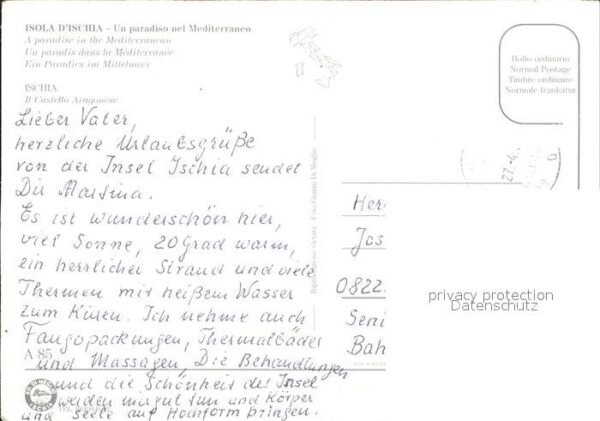 ISOLA D'ISCHIA – Un paradiso nel Mediterraneo
A paradise in the Mediterranean
Un paradis dans la Méditerranée
Ein Paradies im Mittelmeer
ISCHIA
Il Castello Aragonese
Bollo ordinario
Normal Postage
Timbre ordinaire
Normale frankatur
Lieber Vater,
herzliche Urlaubsgrüße
von der Insel Ischia sendet
Dir Martina.
Es ist wunderschön hier,
viel Sonne, 20 Grad warm,
ein herrlicher Strand und viele
Thermen mit heißem Wasser
zum Kuren. Ich nehme auch
Fangopackungen, Thermalbäder
und Massagen. Die Behandlungen
und die Schönheit der Insel
werden mir gut tun und Körper
und Seele auf Hochform bringen.
A 85
27.4
Her
Jos
0822
Seni
Bah
privacy protection
Datenschutz